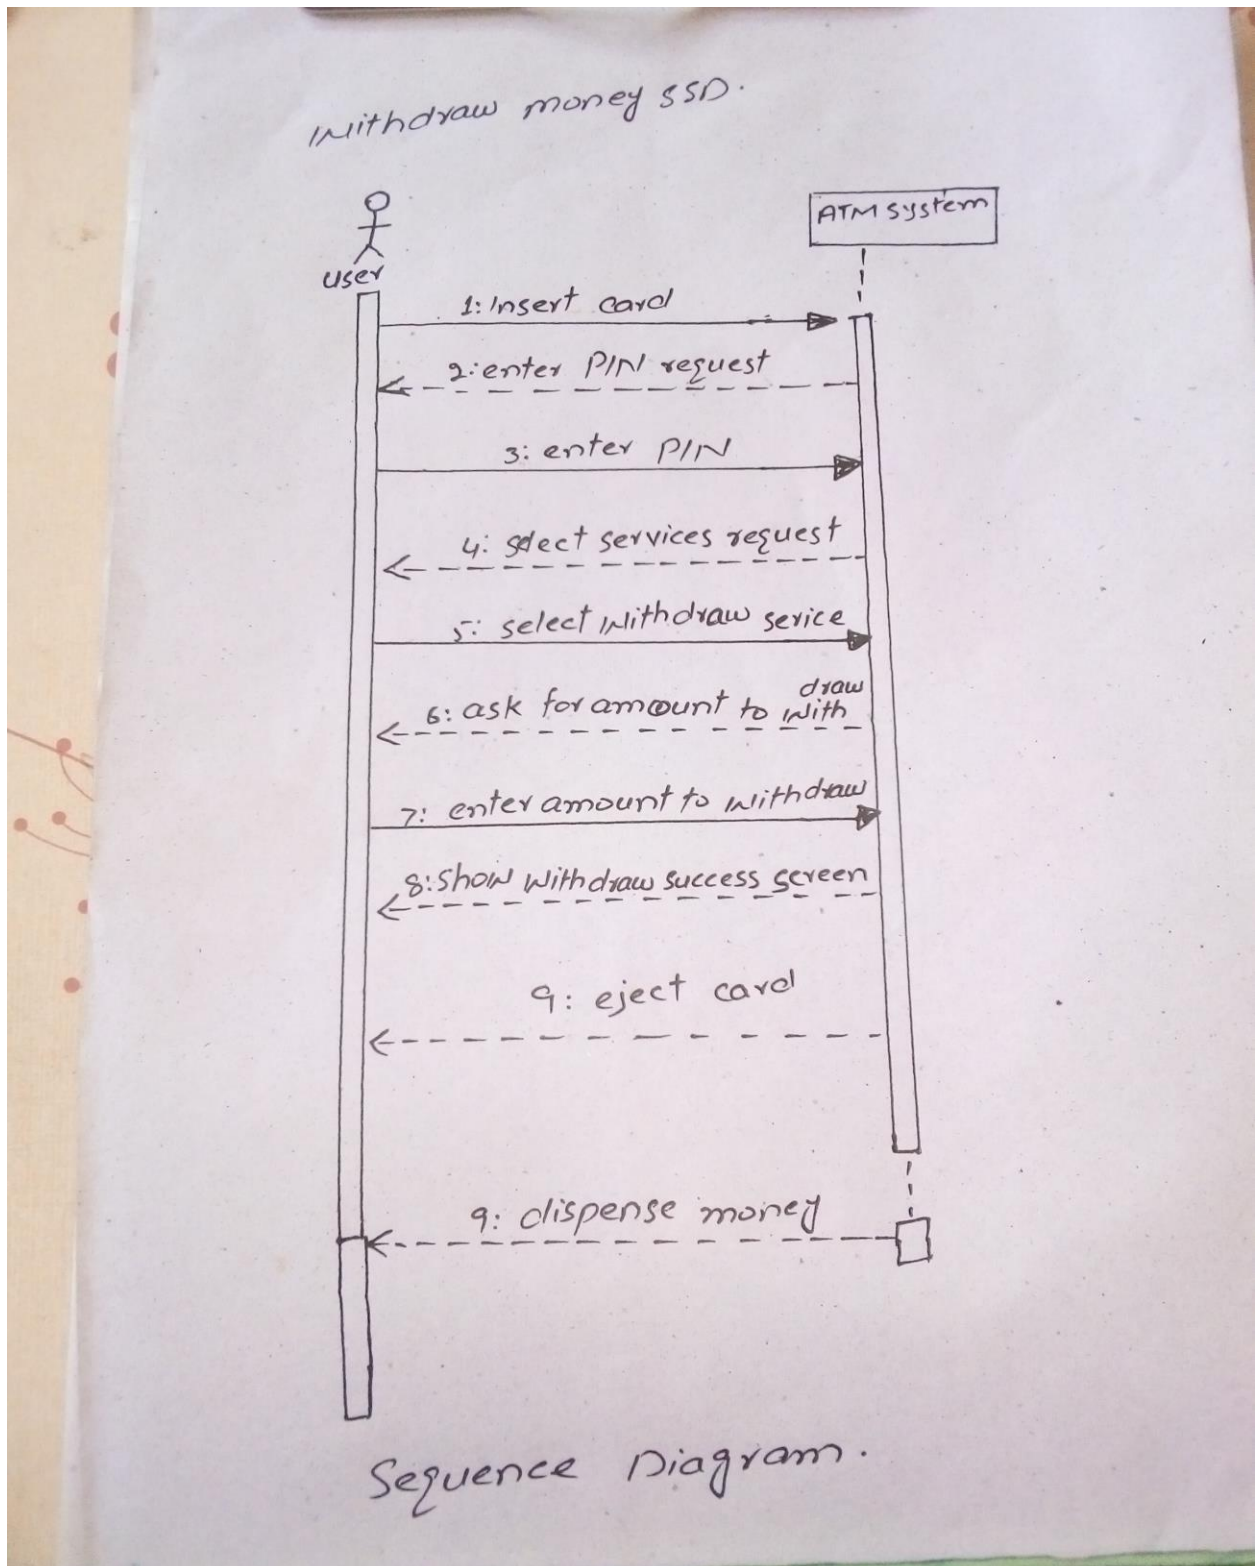 Withdraw money SSD.
user
ATM system
1: Insert card
2: enter PIN request
3: enter PIN
4: select services request
5: select Withdraw serice
6: ask for amount to With
draw
7: enter amount to Withdraw
8: Show Withdraw success screen
9: eject card
9: dispense money
Sequence Diagram.